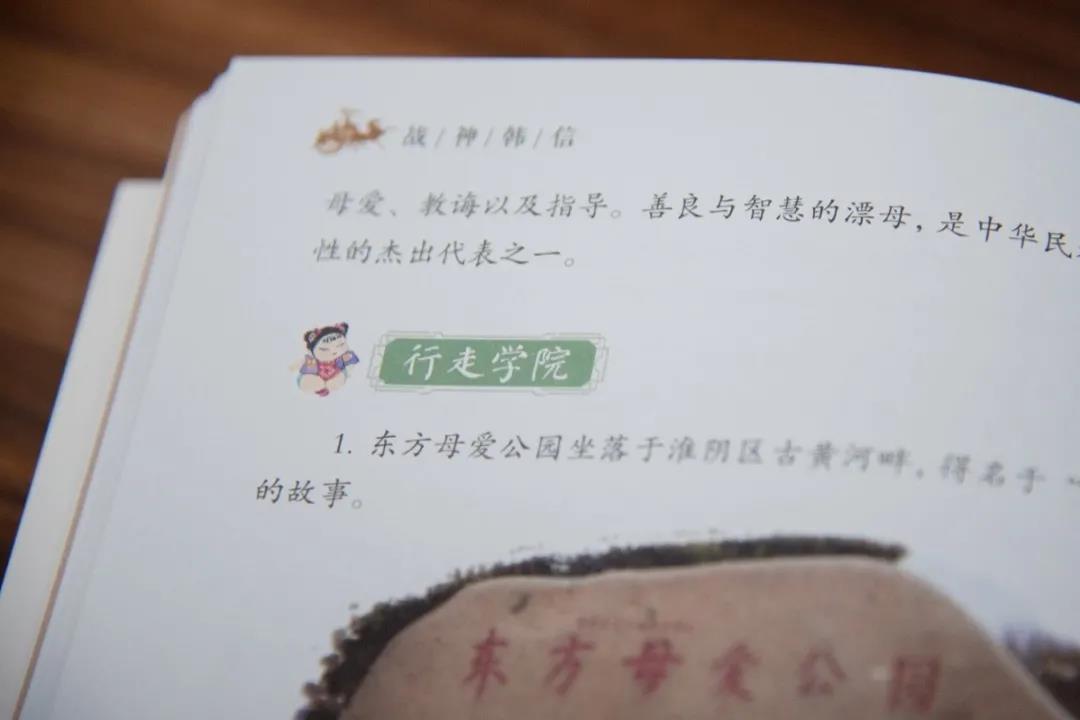 战/神/韩/信
母爱、教诲以及指导。善良与智慧的漂母，是中华民
性的杰出代表之一。
行走学院
1. 东方母爱公园坐落于淮阴区古黄河畔，得名于
的故事。
东方母爱公园